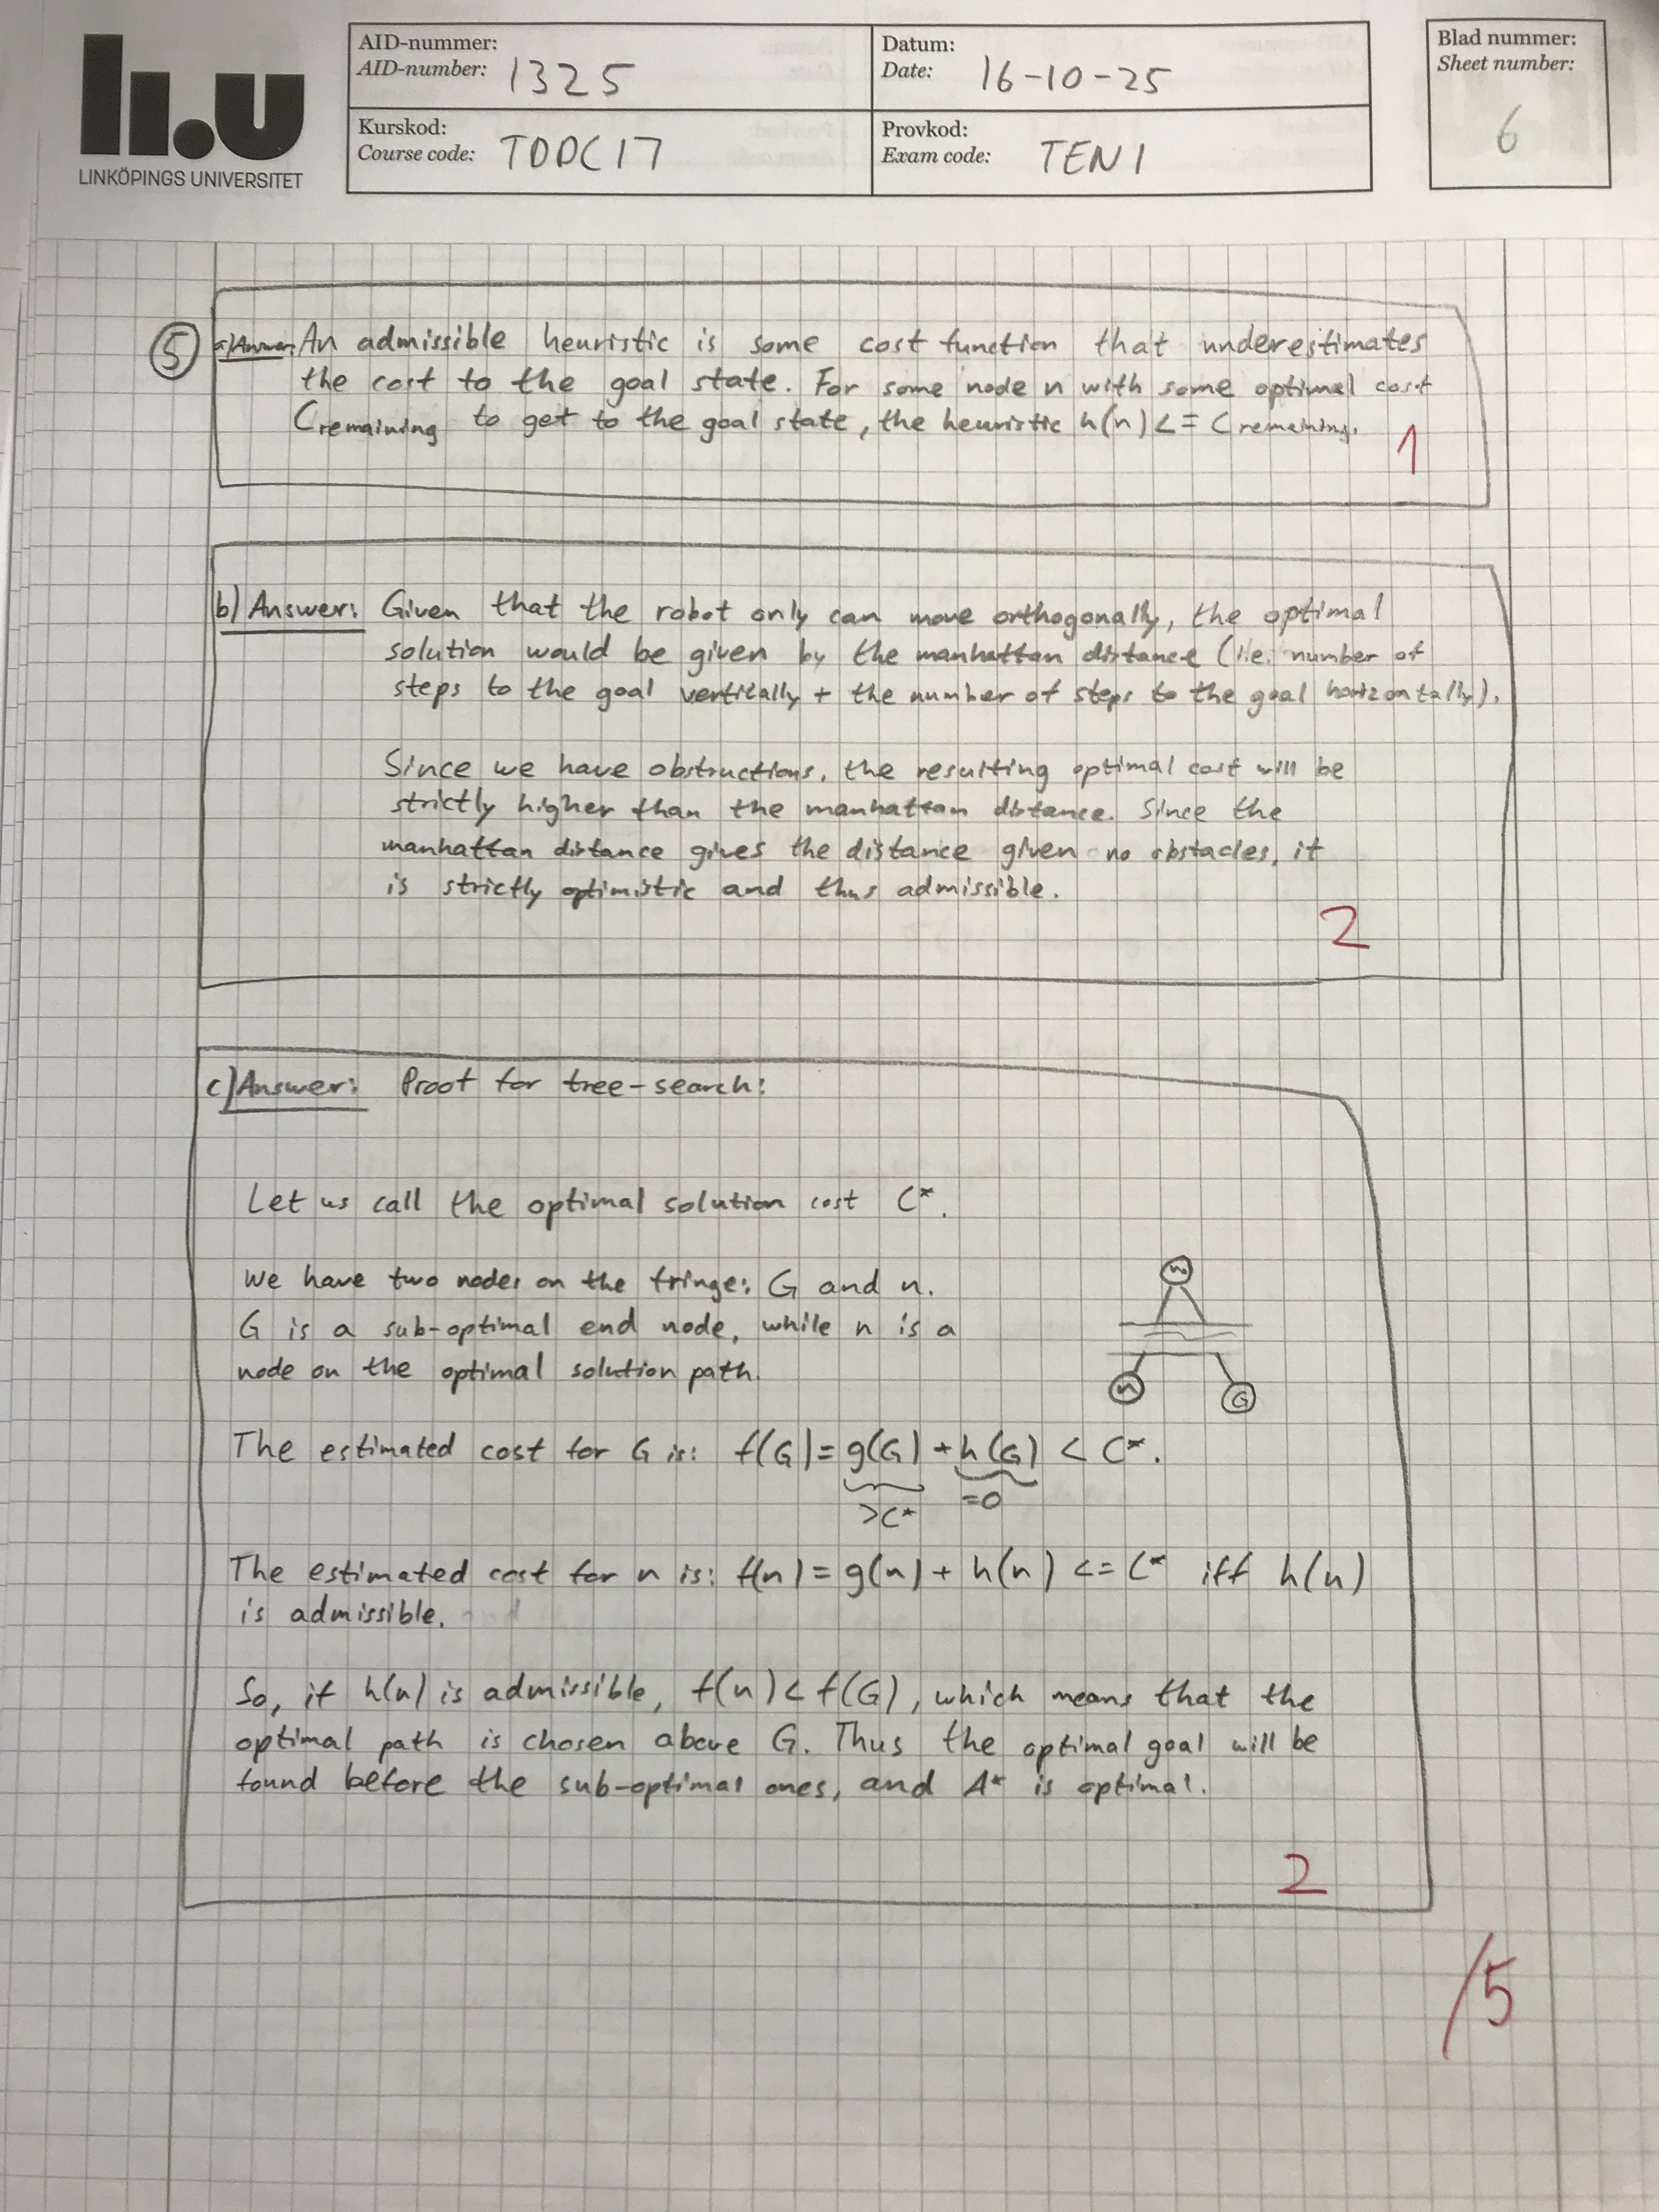 li.u
LINKÖPINGS UNIVERSITET
AID-nummer:
AID-number: 1325
Datum:
Date: 16-10-25
Kurskod:
Course code: TDDC17
Provkod:
Exam code: TEN1
Blad nummer:
Sheet number:
6
5 a) Answer: An admissible heuristic is some cost function that underestimates
the cost to the goal state. For some node n with some optimal cost
Cremaining to get to the goal state, the heuristic h(n) <= Cremaining.
1
b) Answer: Given that the robot only can move orthogonally, the optimal
solution would be given by the manhattan distance (i.e. number of
steps to the goal vertically + the number of steps to the goal horizontally).
Since we have obstructions, the resulting optimal cost will be
strictly higher than the manhattan distance. Since the
manhattan distance gives the distance given no obstacles, it
is strictly optimistic and thus admissible.
2
c) Answer: Proof for tree-search:
Let us call the optimal solution cost C*.
We have two nodes on the fringe: G and n.
G is a sub-optimal end node, while n is a
node on the optimal solution path.
n G
The estimated cost for G is: f(G) = g(G) + h(G) < C*.
>C* =0
The estimated cost for n is: f(n) = g(n) + h(n) <= C* iff h(n)
is admissible.
So, if h(n) is admissible, f(n) < f(G), which means that the
optimal path is chosen above G. Thus the optimal goal will be
found before the sub-optimal ones, and A* is optimal.
2
/5